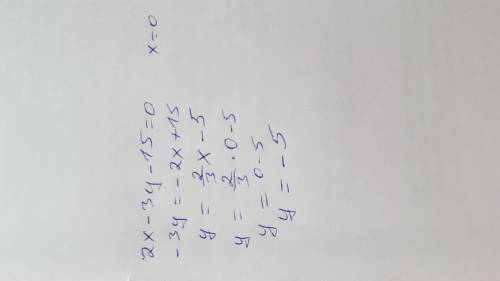 2x - 3y - 15 = 0   x = 0
-3y = -2x + 15
y = 2/3 x - 5
y = 2/3 · 0 - 5
y = 0 - 5
y = -5